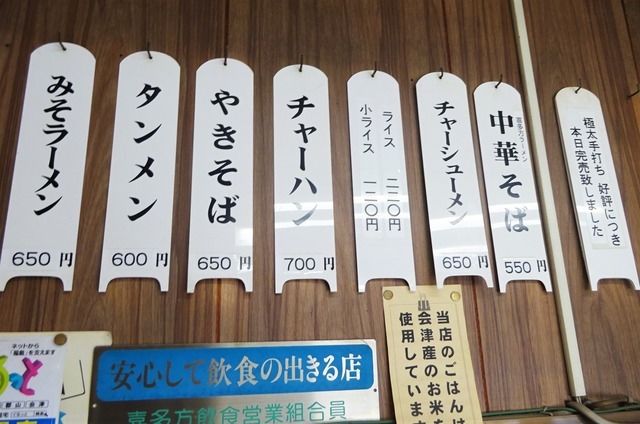 極太手打ち 好評につき
本日完売致しました
喜多方ラーメン
中華そば
550 円
チャーシューメン
650 円
ライス 二二〇円
小ライス 一二〇円
チャーハン
700 円
やきそば
650 円
タンメン
600 円
みそラーメン
650 円
当店のごはんは
会津産のお米を
使用しています
安心して飲食の出きる店
喜多方飲食営業組合員
ネットから
「福島」を支えます
郡山 会津